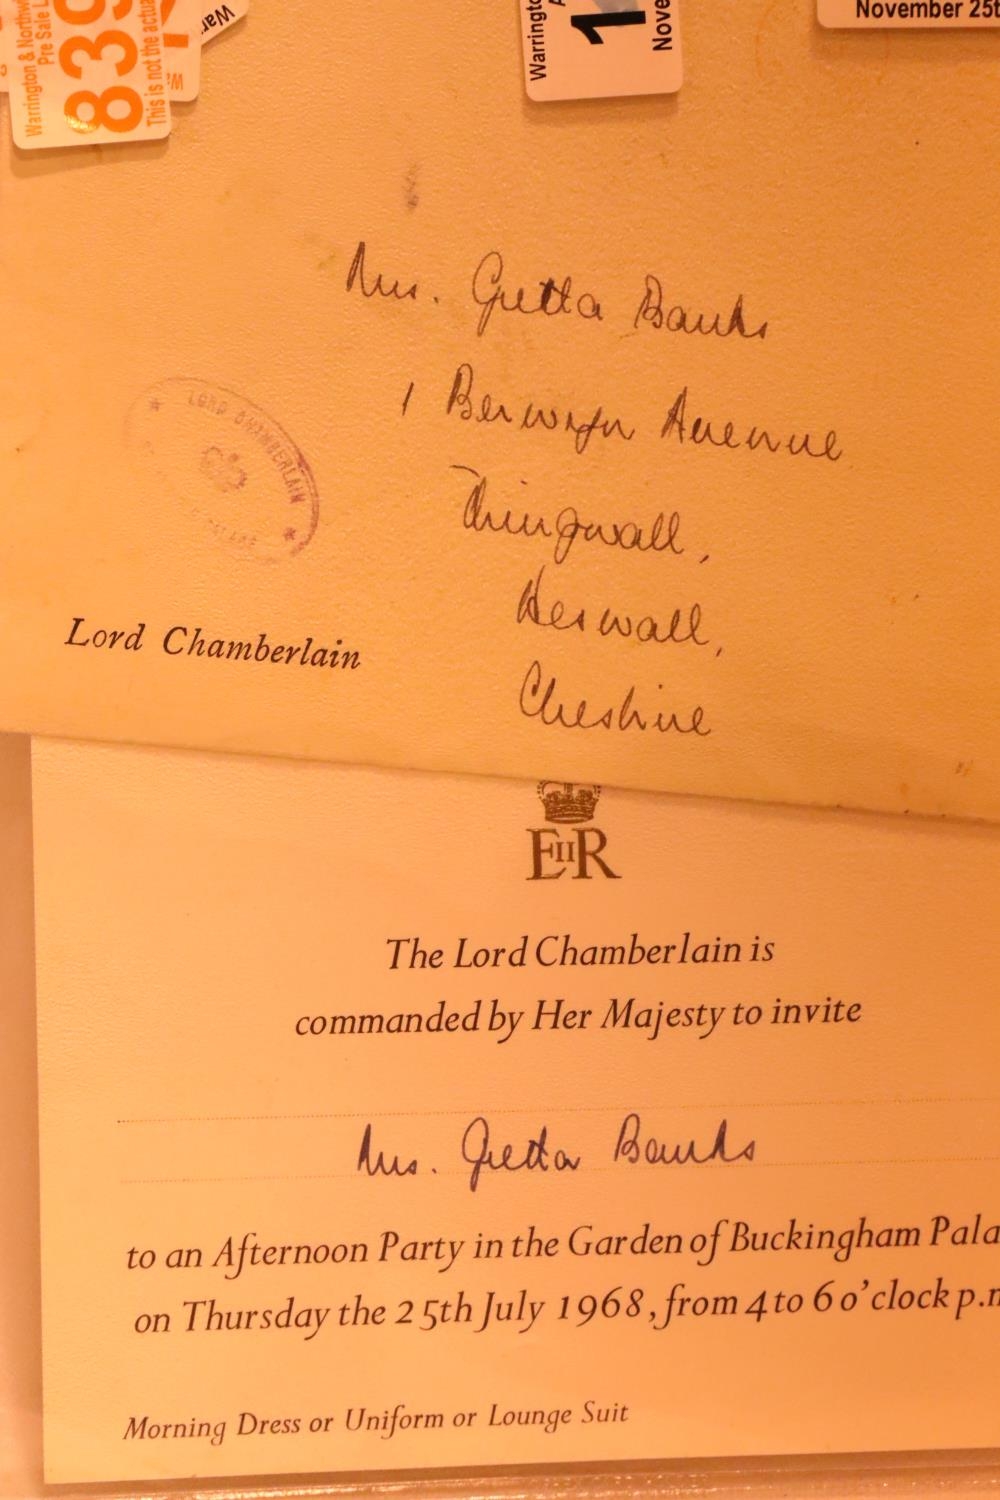 Warrington & Northw
Pre Sale L
839
This is not the actua
Warr
Warringto
1
Nove
November 25t
Mrs. Gretta Banks
1 Berwyn Avenue
Thingwall,
Heswall,
Cheshire
LORD CHAMBERLAIN
Lord Chamberlain
EIIR
The Lord Chamberlain is
commanded by Her Majesty to invite
Mrs. Gretta Banks
to an Afternoon Party in the Garden of Buckingham Pala
on Thursday the 25th July 1968, from 4 to 6 o'clock p.m
Morning Dress or Uniform or Lounge Suit